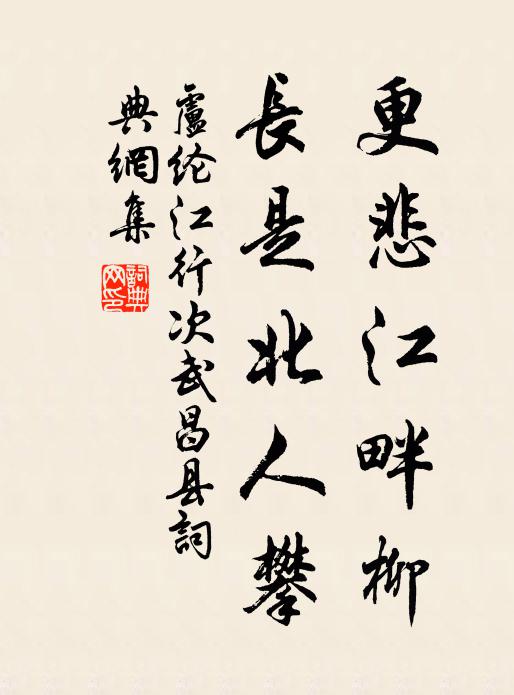 更悲江畔柳
長是北人攀
盧纶江行次武昌县詞
典網集
詞典网印